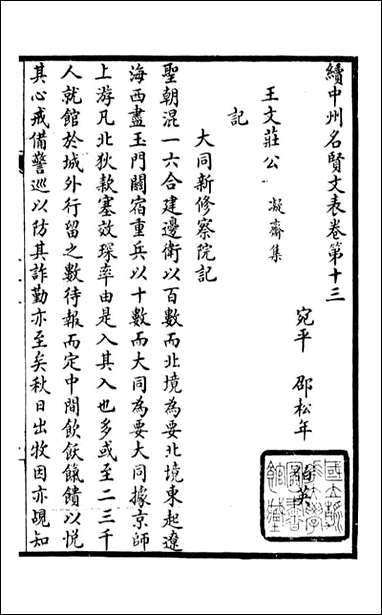 續中州名賢文表卷第十三
宛平　邵松年　伯英
王文莊公　凝齋集
記
大同新修察院記
聖朝混一六合建邊衛以百數而北境為要北境東起遼
海西盡玉門關宿重兵以十數而大同為要大同據京師
上游凡北狄款塞效琛率由是入其入也多或至二三千
人就館於城外行留之數待報而定中間飲飫餼饋以悅
其心戒備警巡以防其詐勤亦至矣秋日出牧因亦覘知